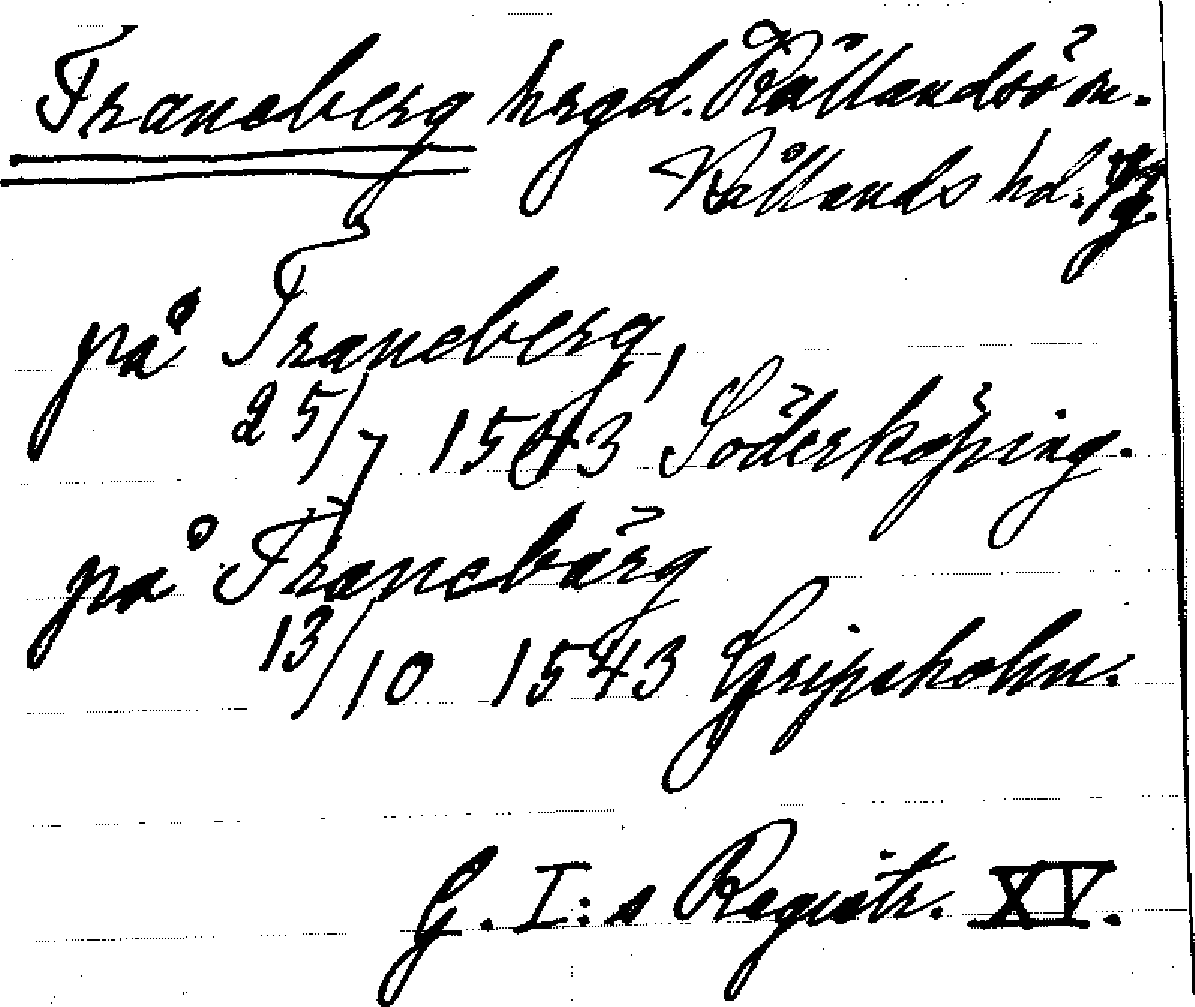 Traneberg hrgd. Kållandsö sn.
Kållands hd. Vg.
på Traneberg,
25/7 1543 Söderköping.
på Tranebärg
13/10 1543 Gripsholm.
G. I:s Registr. XV.